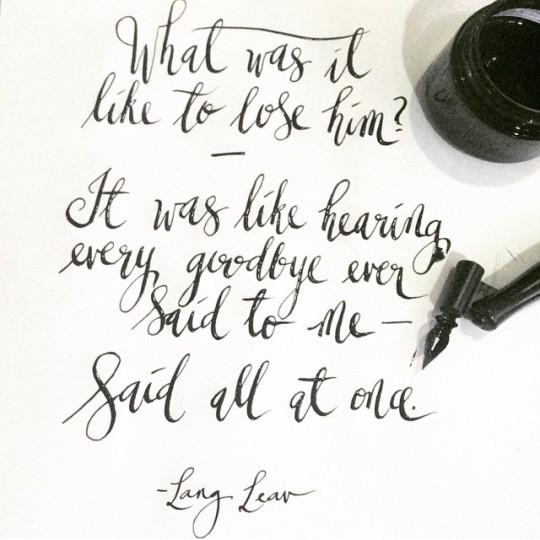 What was it
like to lose him?
—
It was like hearing
every goodbye ever
Said to me —
Said all at once.
-Lang Leav